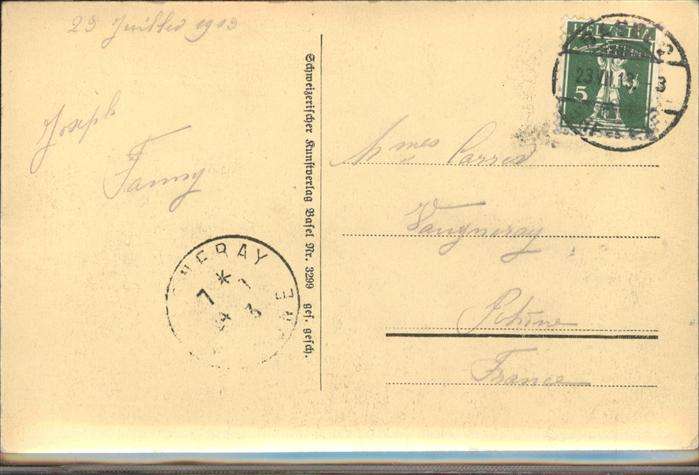 23 Juillet 1913
Joseph
Fanny
Schweizerischer Kunstverlag Basel Nr. 3299 gef. gesch.
HELVETIA
5
23.VII.13
Mmes
Vaugneray
Rhône
France
NERAY
7 *
24